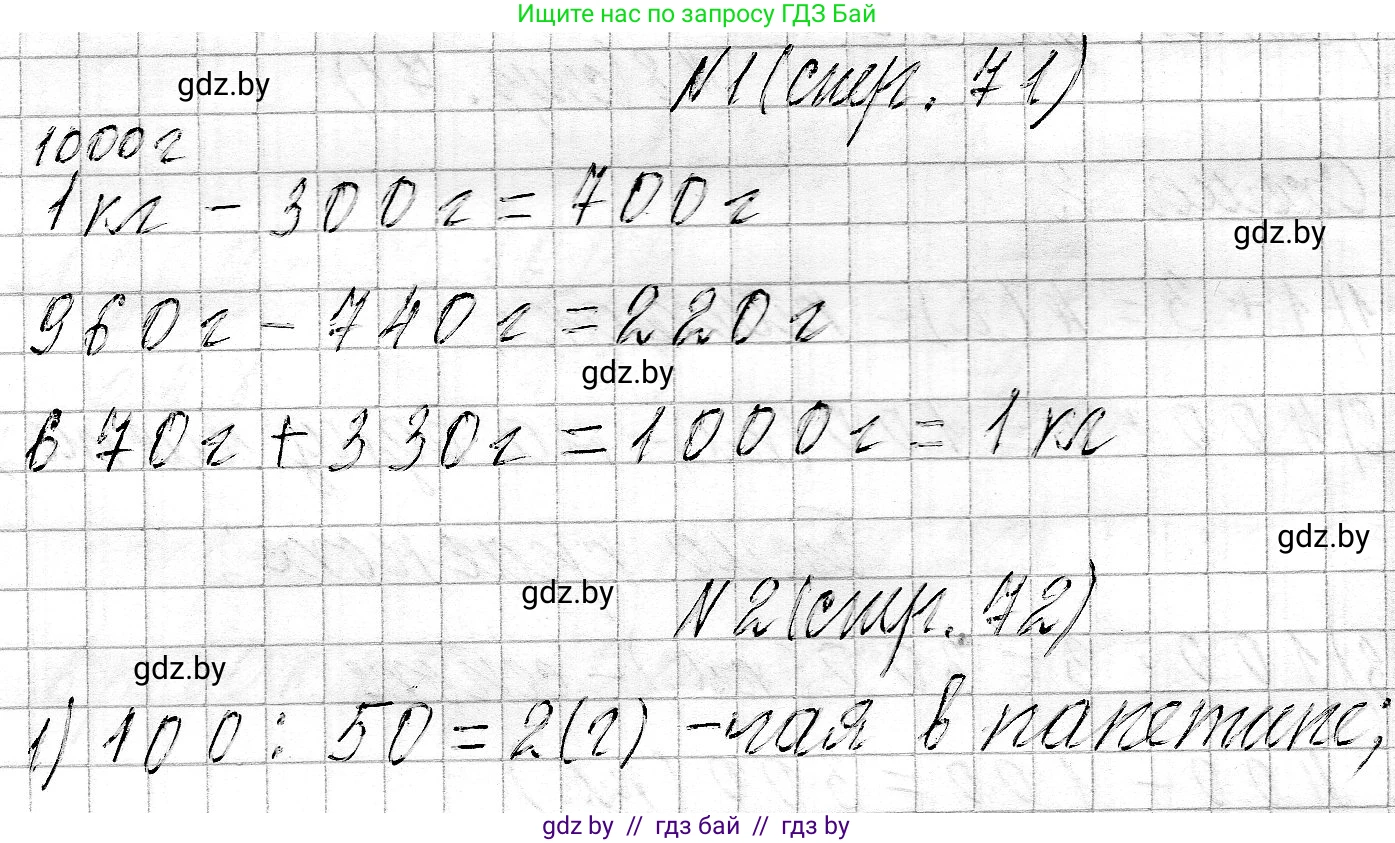 Ищите нас по запросу ГДЗ Бай
gdz.by
№1(стр. 71)
1000г
1кг - 300г = 700г
gdz.by
960г - 740г = 220г
gdz.by
670г + 330г = 1000г = 1кг
gdz.by
gdz.by
№2(стр. 72)
gdz.by
1) 100 : 50 = 2(г) - чая в пакетике;
gdz by // гдз бай // гдз by